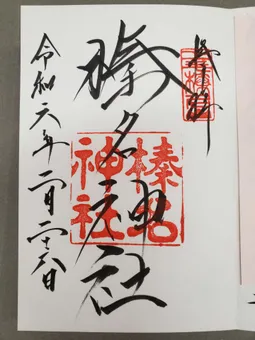 榛名神社
榛名
神社
令和六年二月二十六日